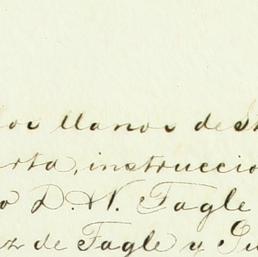 los llanos de
rta, instruccio
o D. N. Tagle
z de Tagle y